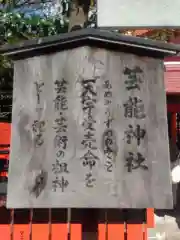 芸能神社
あめのうずめのみこと
天宇受売命を
芸能・芸術の祖神
として祀る